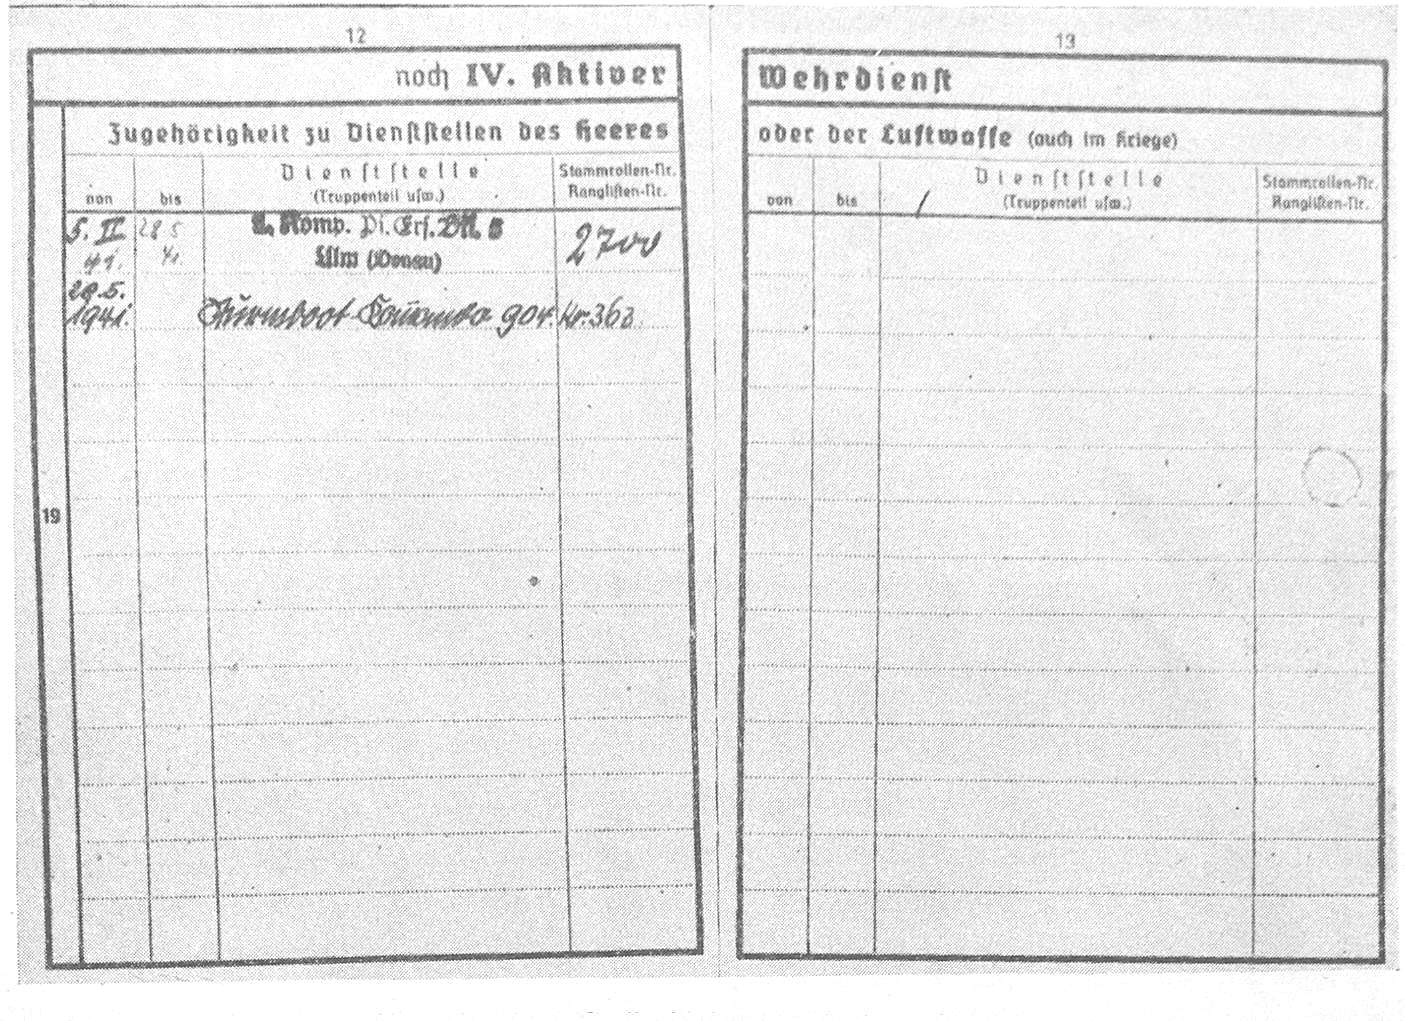 12
noch IV. Aktiver
Zugehörigkeit zu Dienststellen des Heeres
von
bis
Dienststelle
(Truppenteil usw.)
Stammrollen-Nr.
Ranglisten-Nr.
5. II.
41.
28 5
41.
Komp. Pi. Ers. Btl. 5
Ulm (Donau)
2700
29.5.
1941.
Sturmboot 
19
13
Wehrdienst
oder der Luftwaffe (auch im Kriege)
von
bis
Dienststelle
(Truppenteil usw.)
Stammrollen-Nr.
Ranglisten-Nr.